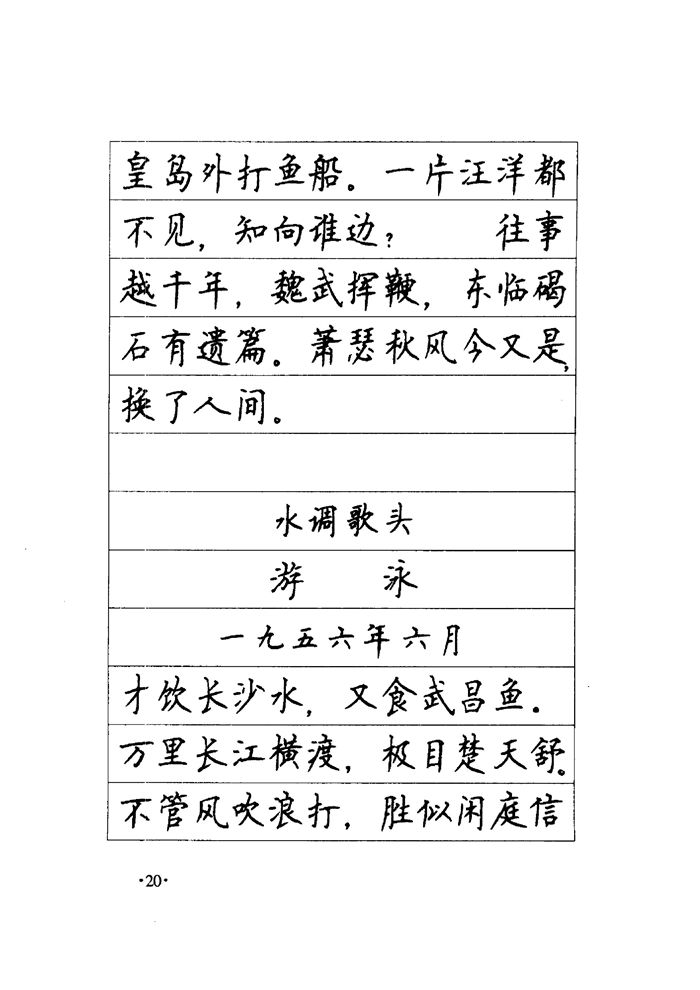 皇岛外打鱼船。一片汪洋都
不见，知向谁边？　　往事
越千年，魏武挥鞭，东临碣
石有遗篇。萧瑟秋风今又是，
换了人间。
水调歌头
游　泳
一九五六年六月
才饮长沙水，又食武昌鱼．
万里长江横渡，极目楚天舒。
不管风吹浪打，胜似闲庭信
·20·